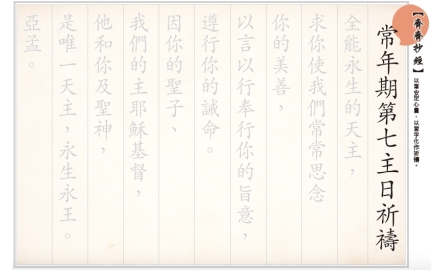 【齊齊抄經】
以筆安定心靈，以習字化作祈禱。
常年期第七主日祈禱
全能永生的天主，
求你使我們常常思念
你的美善，
以言以行奉行你的旨意，
遵行你的誡命。
因你的聖子、
我們的主耶穌基督，
他和你及聖神，
是唯一天主，永生永王。
亞孟。